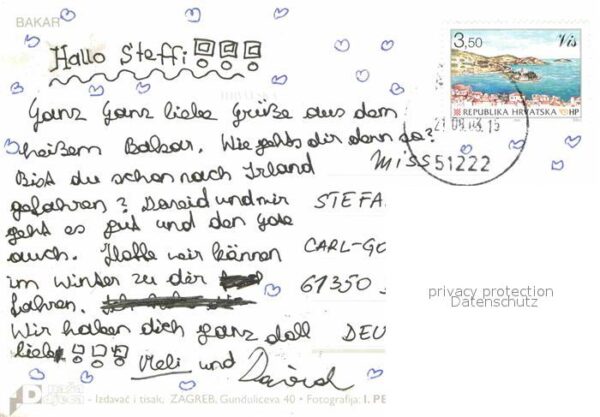 BAKAR
Hallo Steffi
Ganz Ganz liebe Grüße aus dem
heißem Bakar. Wie gehts dir denn da?
Bist du schon nach Irland
gefahren? David und mir
geht es gut und den
auch. Hoffe wir können
im Winter zu dir
fahren.
Wir haben dich ganz doll
lieb
und
David
3,50
Vis
REPUBLIKA HRVATSKA HP
51222
MISS
STEFA
CARL-GO
61350
DEU
privacy protection
Datenschutz
- Izdavač i tisak, ZAGREB, Gundulićeva 40 • Fotografija: I. PE